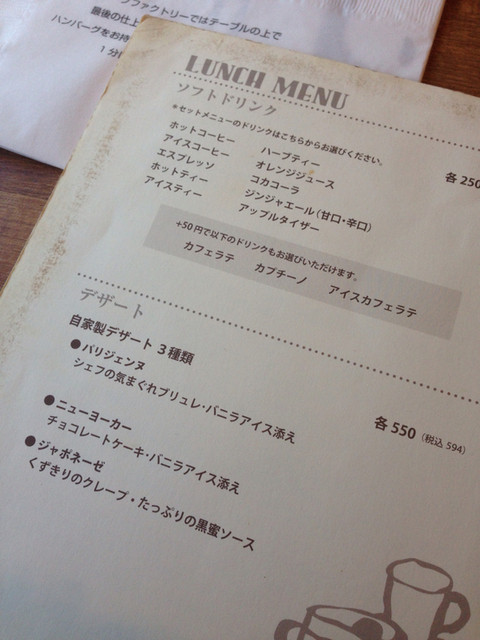 ファクトリーではテーブルの上で
最後の仕上
ハンバーグをお持
１分
LUNCH MENU
ソフトドリンク
*セットメニューのドリンクはこちらからお選びください。
各 250
ホットコーヒー
アイスコーヒー
エスプレッソ
ホットティー
アイスティー
ハーブティー
オレンジジュース
コカコーラ
ジンジャエール（甘口・辛口）
アップルタイザー
+50円で以下のドリンクもお選びいただけます。
カフェラテ カプチーノ アイスカフェラテ
デザート
自家製デザート 3種類
各 550（税込 594）
●パリジェンヌ
シェフの気まぐれブリュレ・バニラアイス添え
●ニューヨーカー
チョコレートケーキ・バニラアイス添え
●ジャポネーゼ
くずきりのクレープ・たっぷりの黒蜜ソース